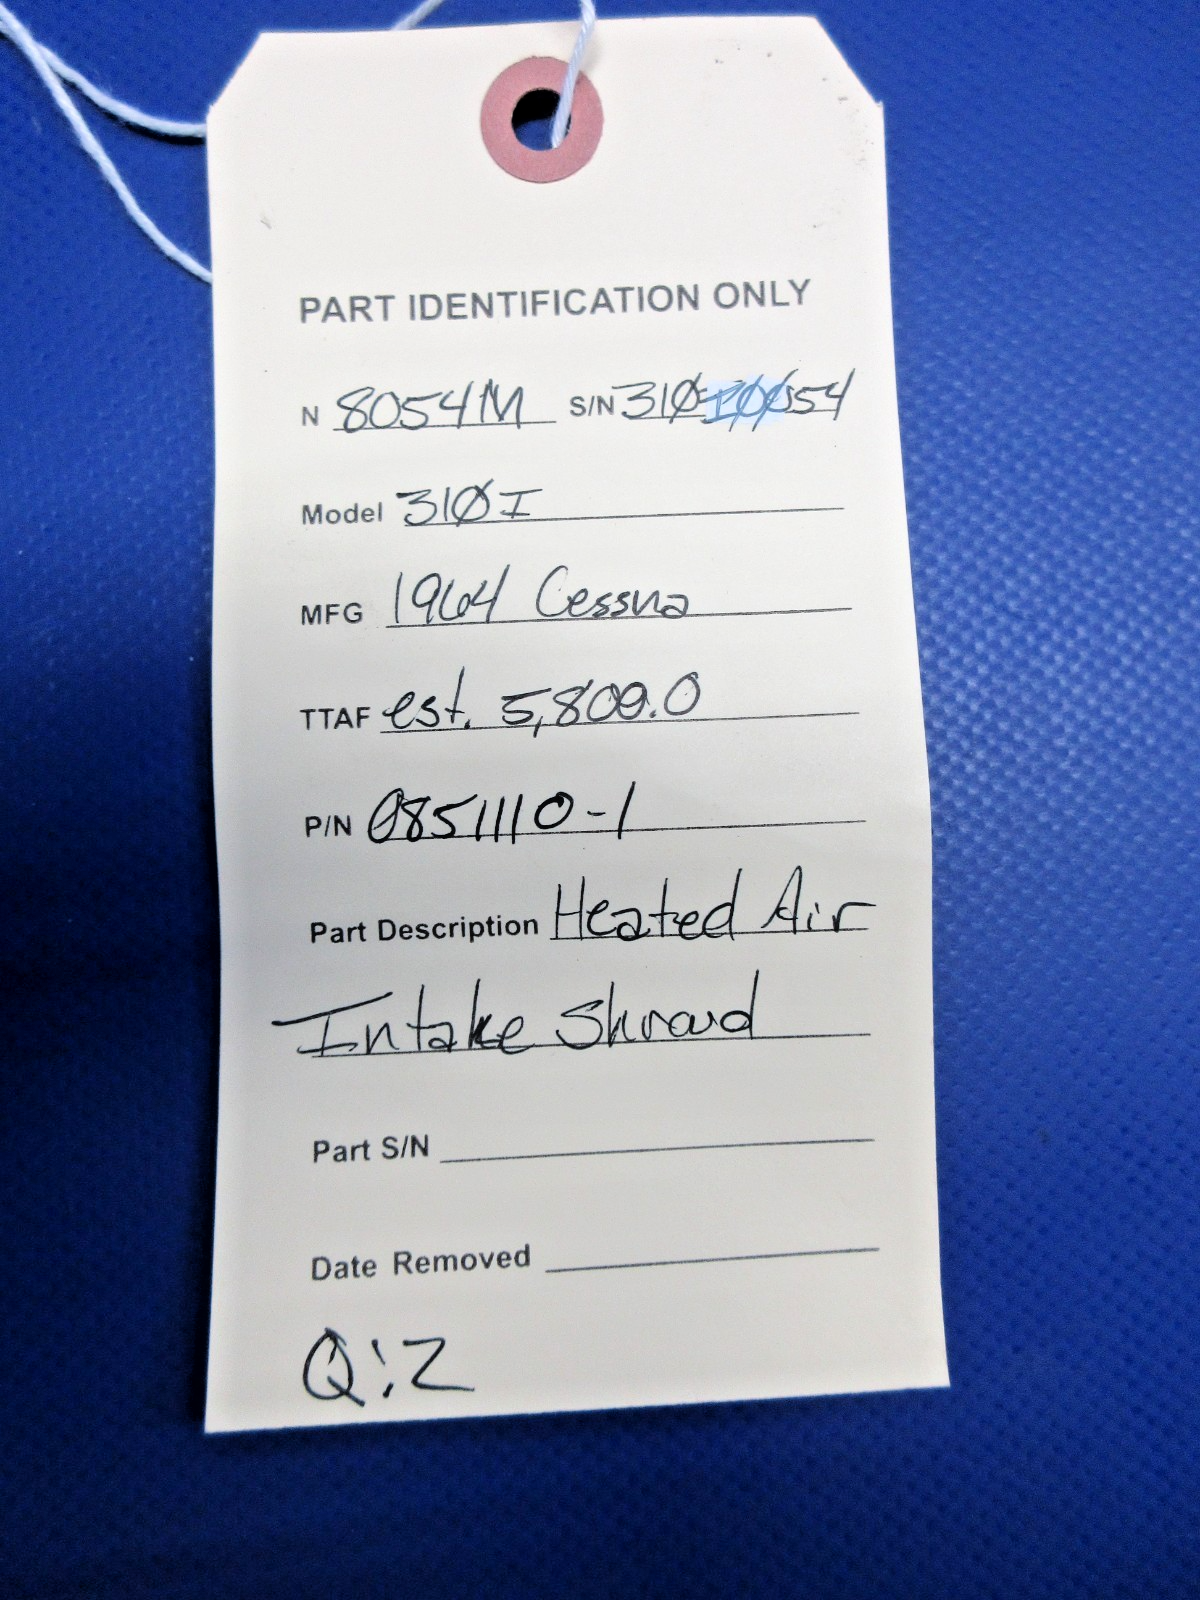 PART IDENTIFICATION ONLY
N 8054M S/N 310I0054
Model 310I
MFG 1964 Cessna
TTAF est. 5,800.0
P/N 0851110-1
Part Description Heated Air
Intake Shroud
Part S/N
Date Removed
Q:2